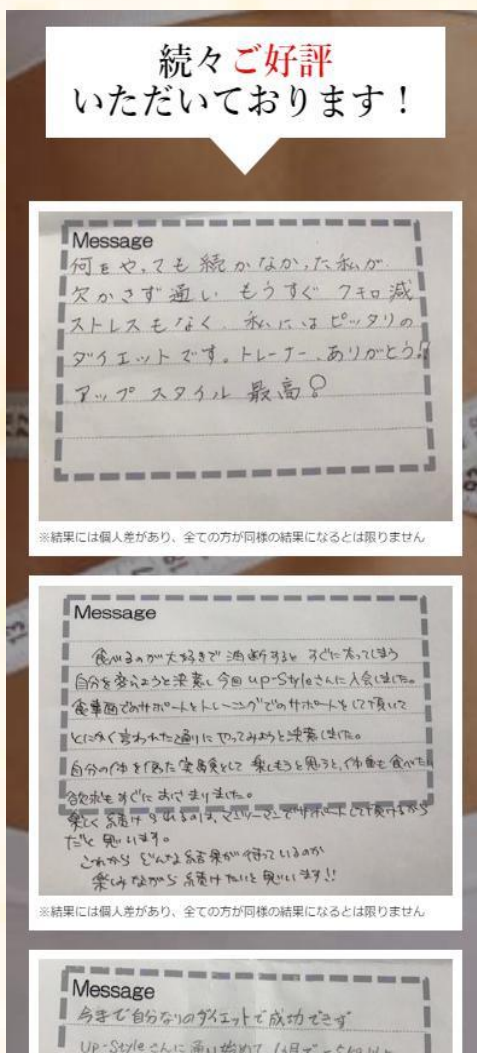 続々ご好評
いただいております！
Message
何をやっても続かなかった私が
欠かさず通い もうすぐ 7キロ減
ストレスもなく、私にはピッタリの
ダイエットです。トレーナー、ありがとう!!
アップ スタイル 最高
※結果には個人差があり、全ての方が同様の結果になるとは限りません
Message
食べるのが大好きで油断すると すぐに太ってしまう
自分を変えようと決意し今回 up-Styleさんに入会しました。
食事面でのサポートとトレーニングでのサポートをして頂いて
とにかく言われた通りにやってみようと決意しました。
自分の体を使った実験として 楽しもうと思うと、体重も食べたい
欲求もすぐにおさまりました。
楽しく続けられるのは、マンツーマンでサポートして頂けるから
だと思います。
これから どんな結果が待っているのか
楽しみながら続けたいと思います!!
※結果には個人差があり、全ての方が同様の結果になるとは限りません
Message
今まで自分なりのダイエットで成功できず
up-Styleさんに通い始めて 1ヶ月で